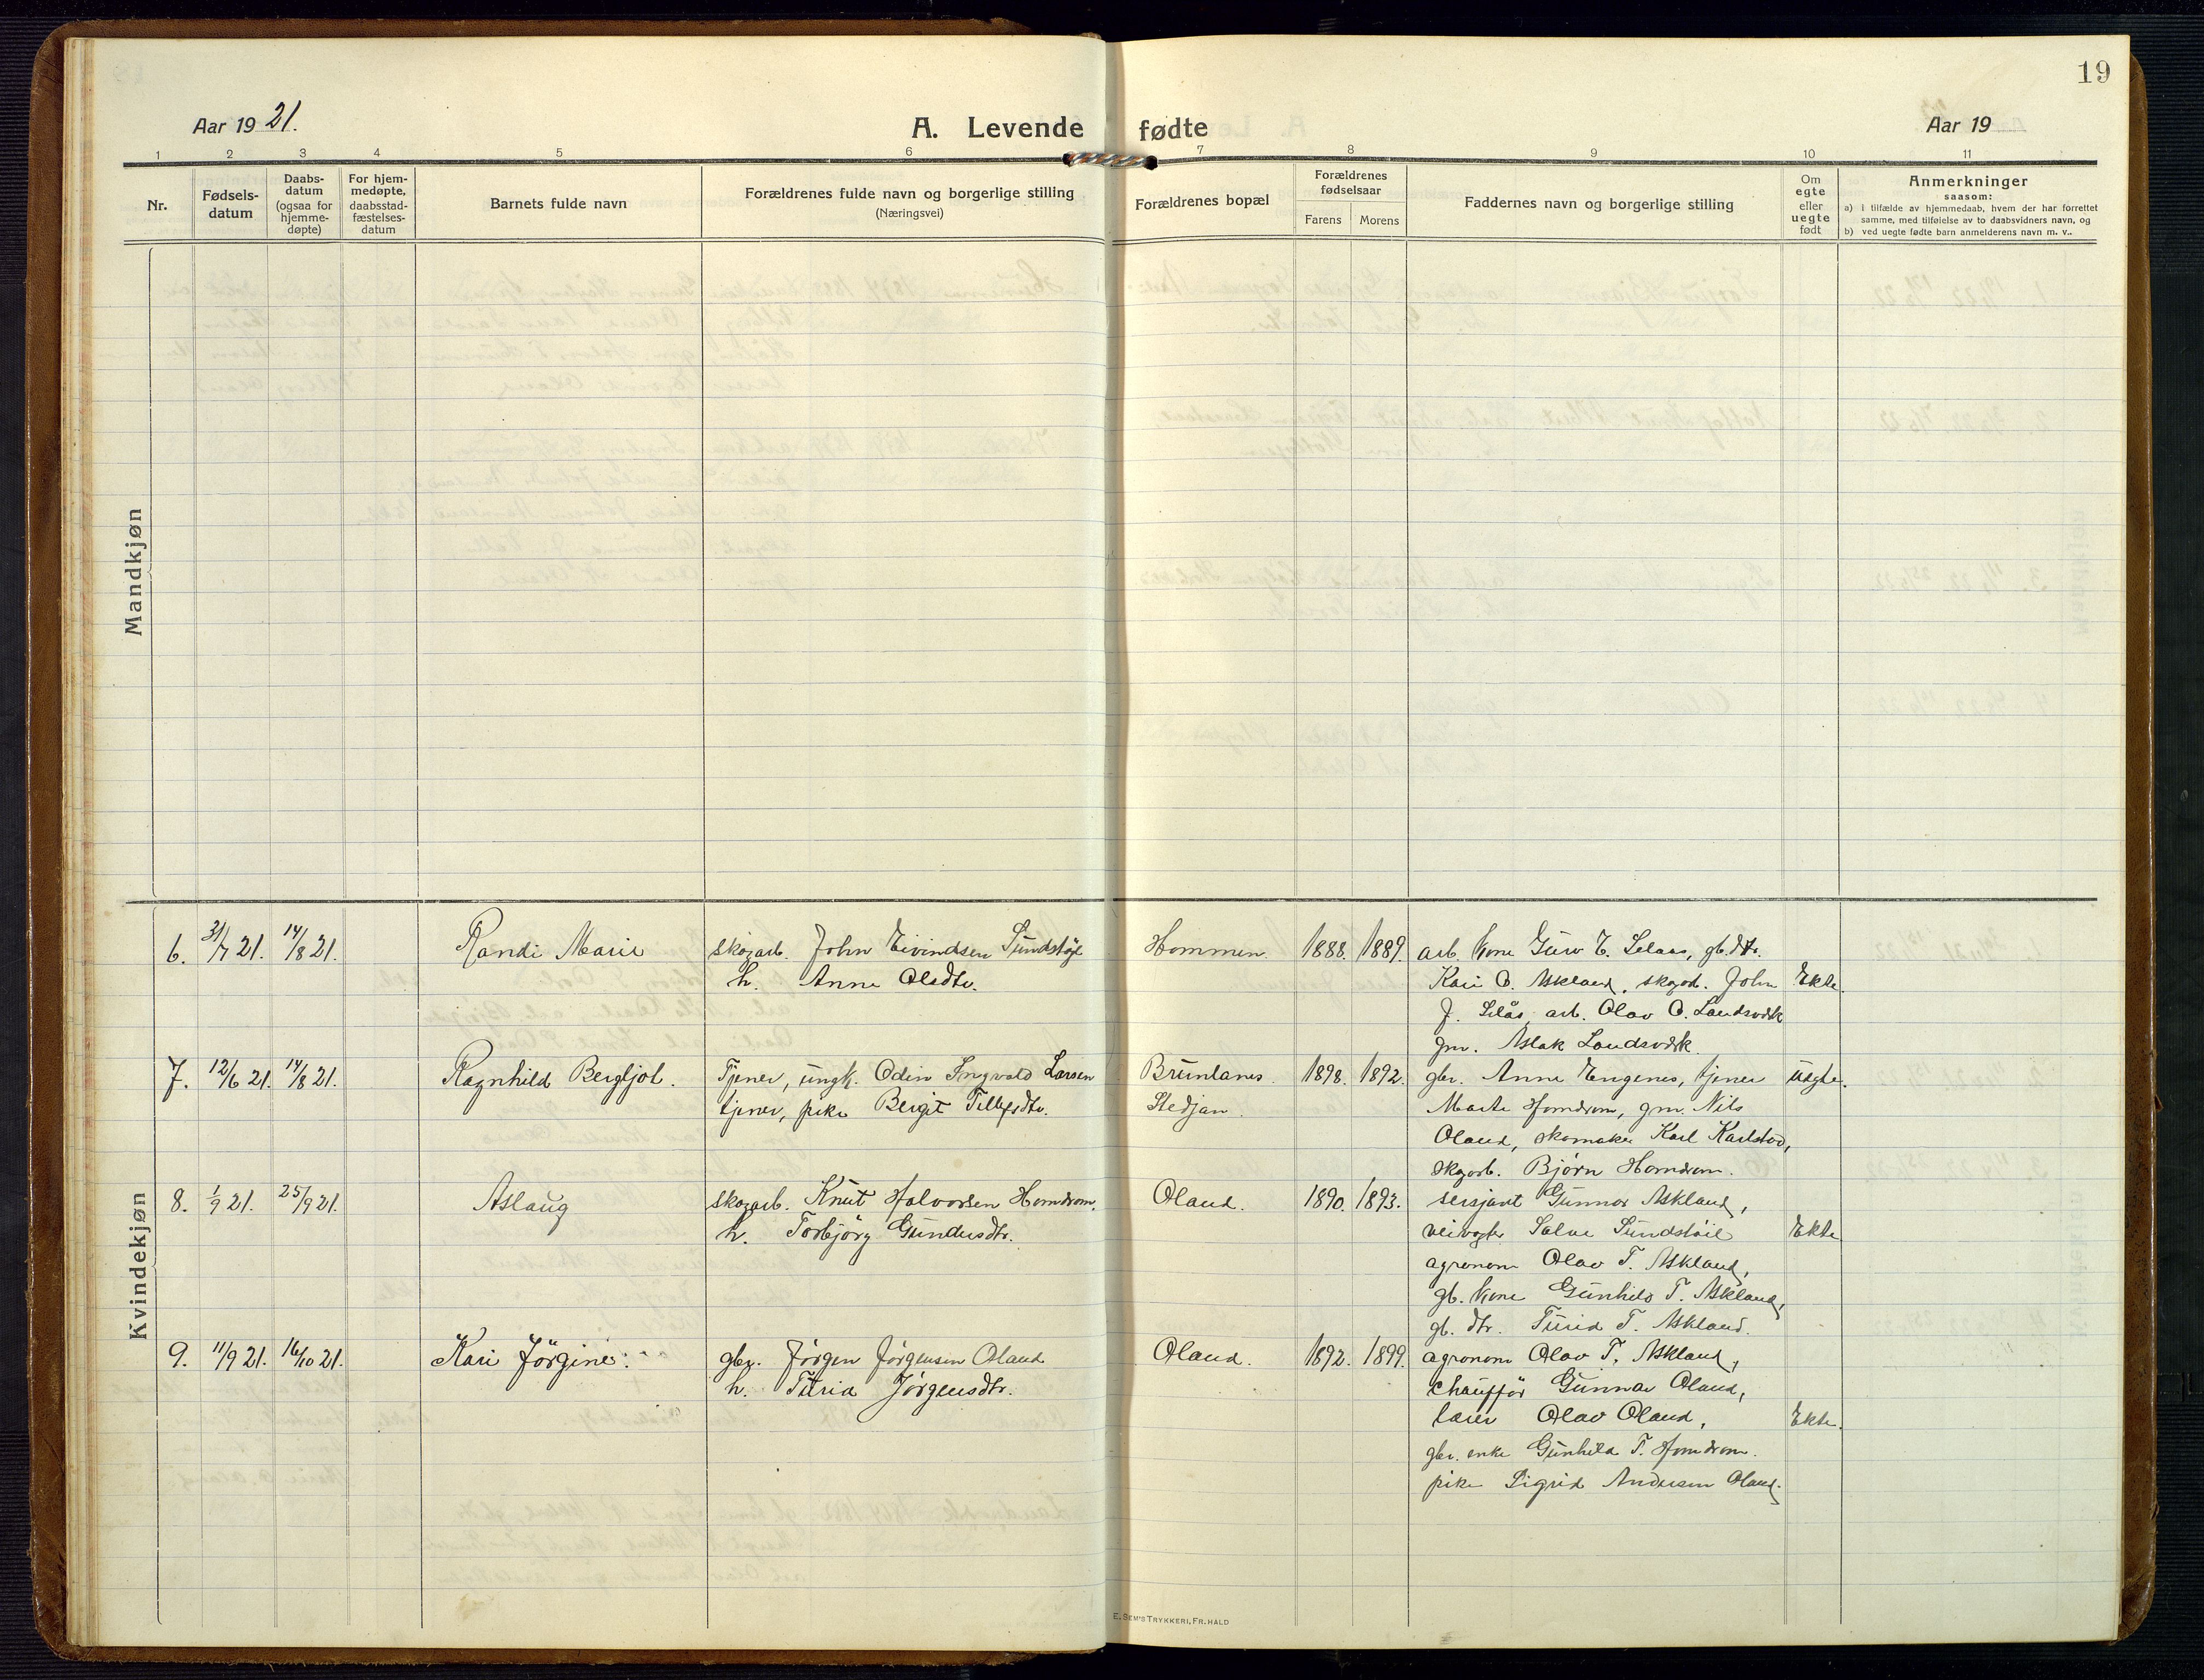 19
Aar 19 21.
A. Levende fødte
Aar 19
1 2 3 4 5 6 7 8 9 10 11
Nr.
Fødsels-
datum
Daabs-
datum
(ogsaa for
hjemme-
døpte)
For hjem-
medøpte,
daabsstad-
fæstelses-
datum
Barnets fulde navn
Forældrenes fulde navn og borgerlige stilling
(Næringsvei)
Forældrenes bopæl
Forældrenes
fødselsaar
Farens Morens
Faddernes navn og borgerlige stilling
Om
egte
eller
uegte
født
Anmerkninger
saasom:
a) i tilfælde av hjemmedaab, hvem der har forrettet
samme, med tilføielse av to daabsvidners navn, og
b) ved uegte fødte barn anmelderens navn m. v..
Mandkjøn
Kvindekjøn
6. 31/7 21. 14/8 21. Randi Marie skogarb. John Eivindsen Sundstøyl Hommen 1888. 1889. arb. kone Guro T. Selaas, gb. dtr.
h. Anne Olsdtr. Kari O. Askland, skogarb. John Ekte.
J. Selås, arb. Olav O. Landsverk
gm. Aslak Landsverk
7. 12/6 21. 14/8 21. Ragnhild Bergljot. Tjener, ungk. Odin Ingvald Larsen Brunlanes 1898. 1892. gbr. Anne Engenes, tjener uegte.
tjener, pike Bergit Tellefsdtr. Stedjan. Marte Homdrom, gm. Nils
Oland, skomaker Karl Karlstad,
skogarb. Bjørn Homdrom.
8. 1/9 21. 25/9 21. Aslaug skogarb. Knut Halvorsen Homdrom, Oland. 1890. 1893. sersjant Gunnar Askland,
h. Torbjörg Gundersdtr. veivogter Salve Sundstøil Ekte
agronom Olav T. Askland,
gb. kone Gunhild T. Askland,
gb. dtr. Turid T. Askland.
9. 11/9 21. 16/10 21. Kari Jörgine. gbr. Jörgen Jörgensen Oland Oland. 1892. 1899. agronom Olav T. Askland,
h. Turid Jörgensdtr. chaufför Gunnar Oland,
lærer Olav Oland, Ekte.
gbr. enke Gunhild T. Homdrom.
pike Sigrid Andersen Oland.
E. SEM'S TRYKKERI, FR.HALD